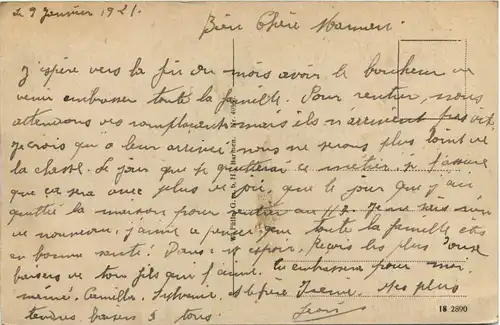 Le 9 Janvier 1921.
Bien Chère Maman.
J'espère vers la fin du mois avoir le bonheur de
venir embrasser toute la famille. Pour rentrer, nous
attendons des remplaçants mais ils n'arrivent pas vite
Je crois qu'à leur arrivée nous ne serons plus loin de
la classe. Le jour que je quitterai ce métier, je t'assure
que ce sera avec plus de joie, que le jour que j'ai
quitté la maison pour au Je ne sais rien
de nouveau, j'aime à penser que toute la famille est
en bonne santé! Dans cet espoir, reçois les plus doux
baisers de ton fils qui t'aime. embrasseras pour moi,
mémé, Camille, Sylvanie, & le frère Irénée. Mes plus
tendres baisers à tous.
18 2890